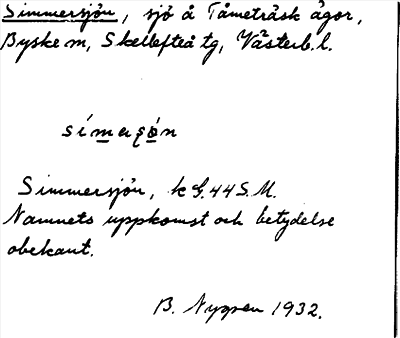 Simmersjön, sjö å Tåmeträsk ägor,
Byske sn, Skellefteå tg, Västerb. l.
símerşön
Simmersjön, k G. 44 S. M.
Namnets uppkomst och betydelse
obekant.
B. Nygren 1932.